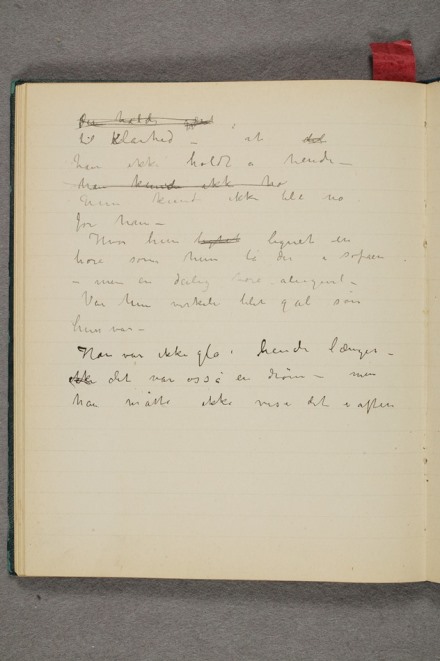 til Klarhed – at
han ikke holdt a hende –
han kunde ikke
kunde ikke bli no
for han –
Hvor hun lignet en
hore som hun lå der i sofaen
– men en deilig hore alligevel –
Var hun virkelig blit gal som
hun var –
Han var ikke gla i hende længer –
det var osså en drøm – men
han måtte ikke vise det i aften